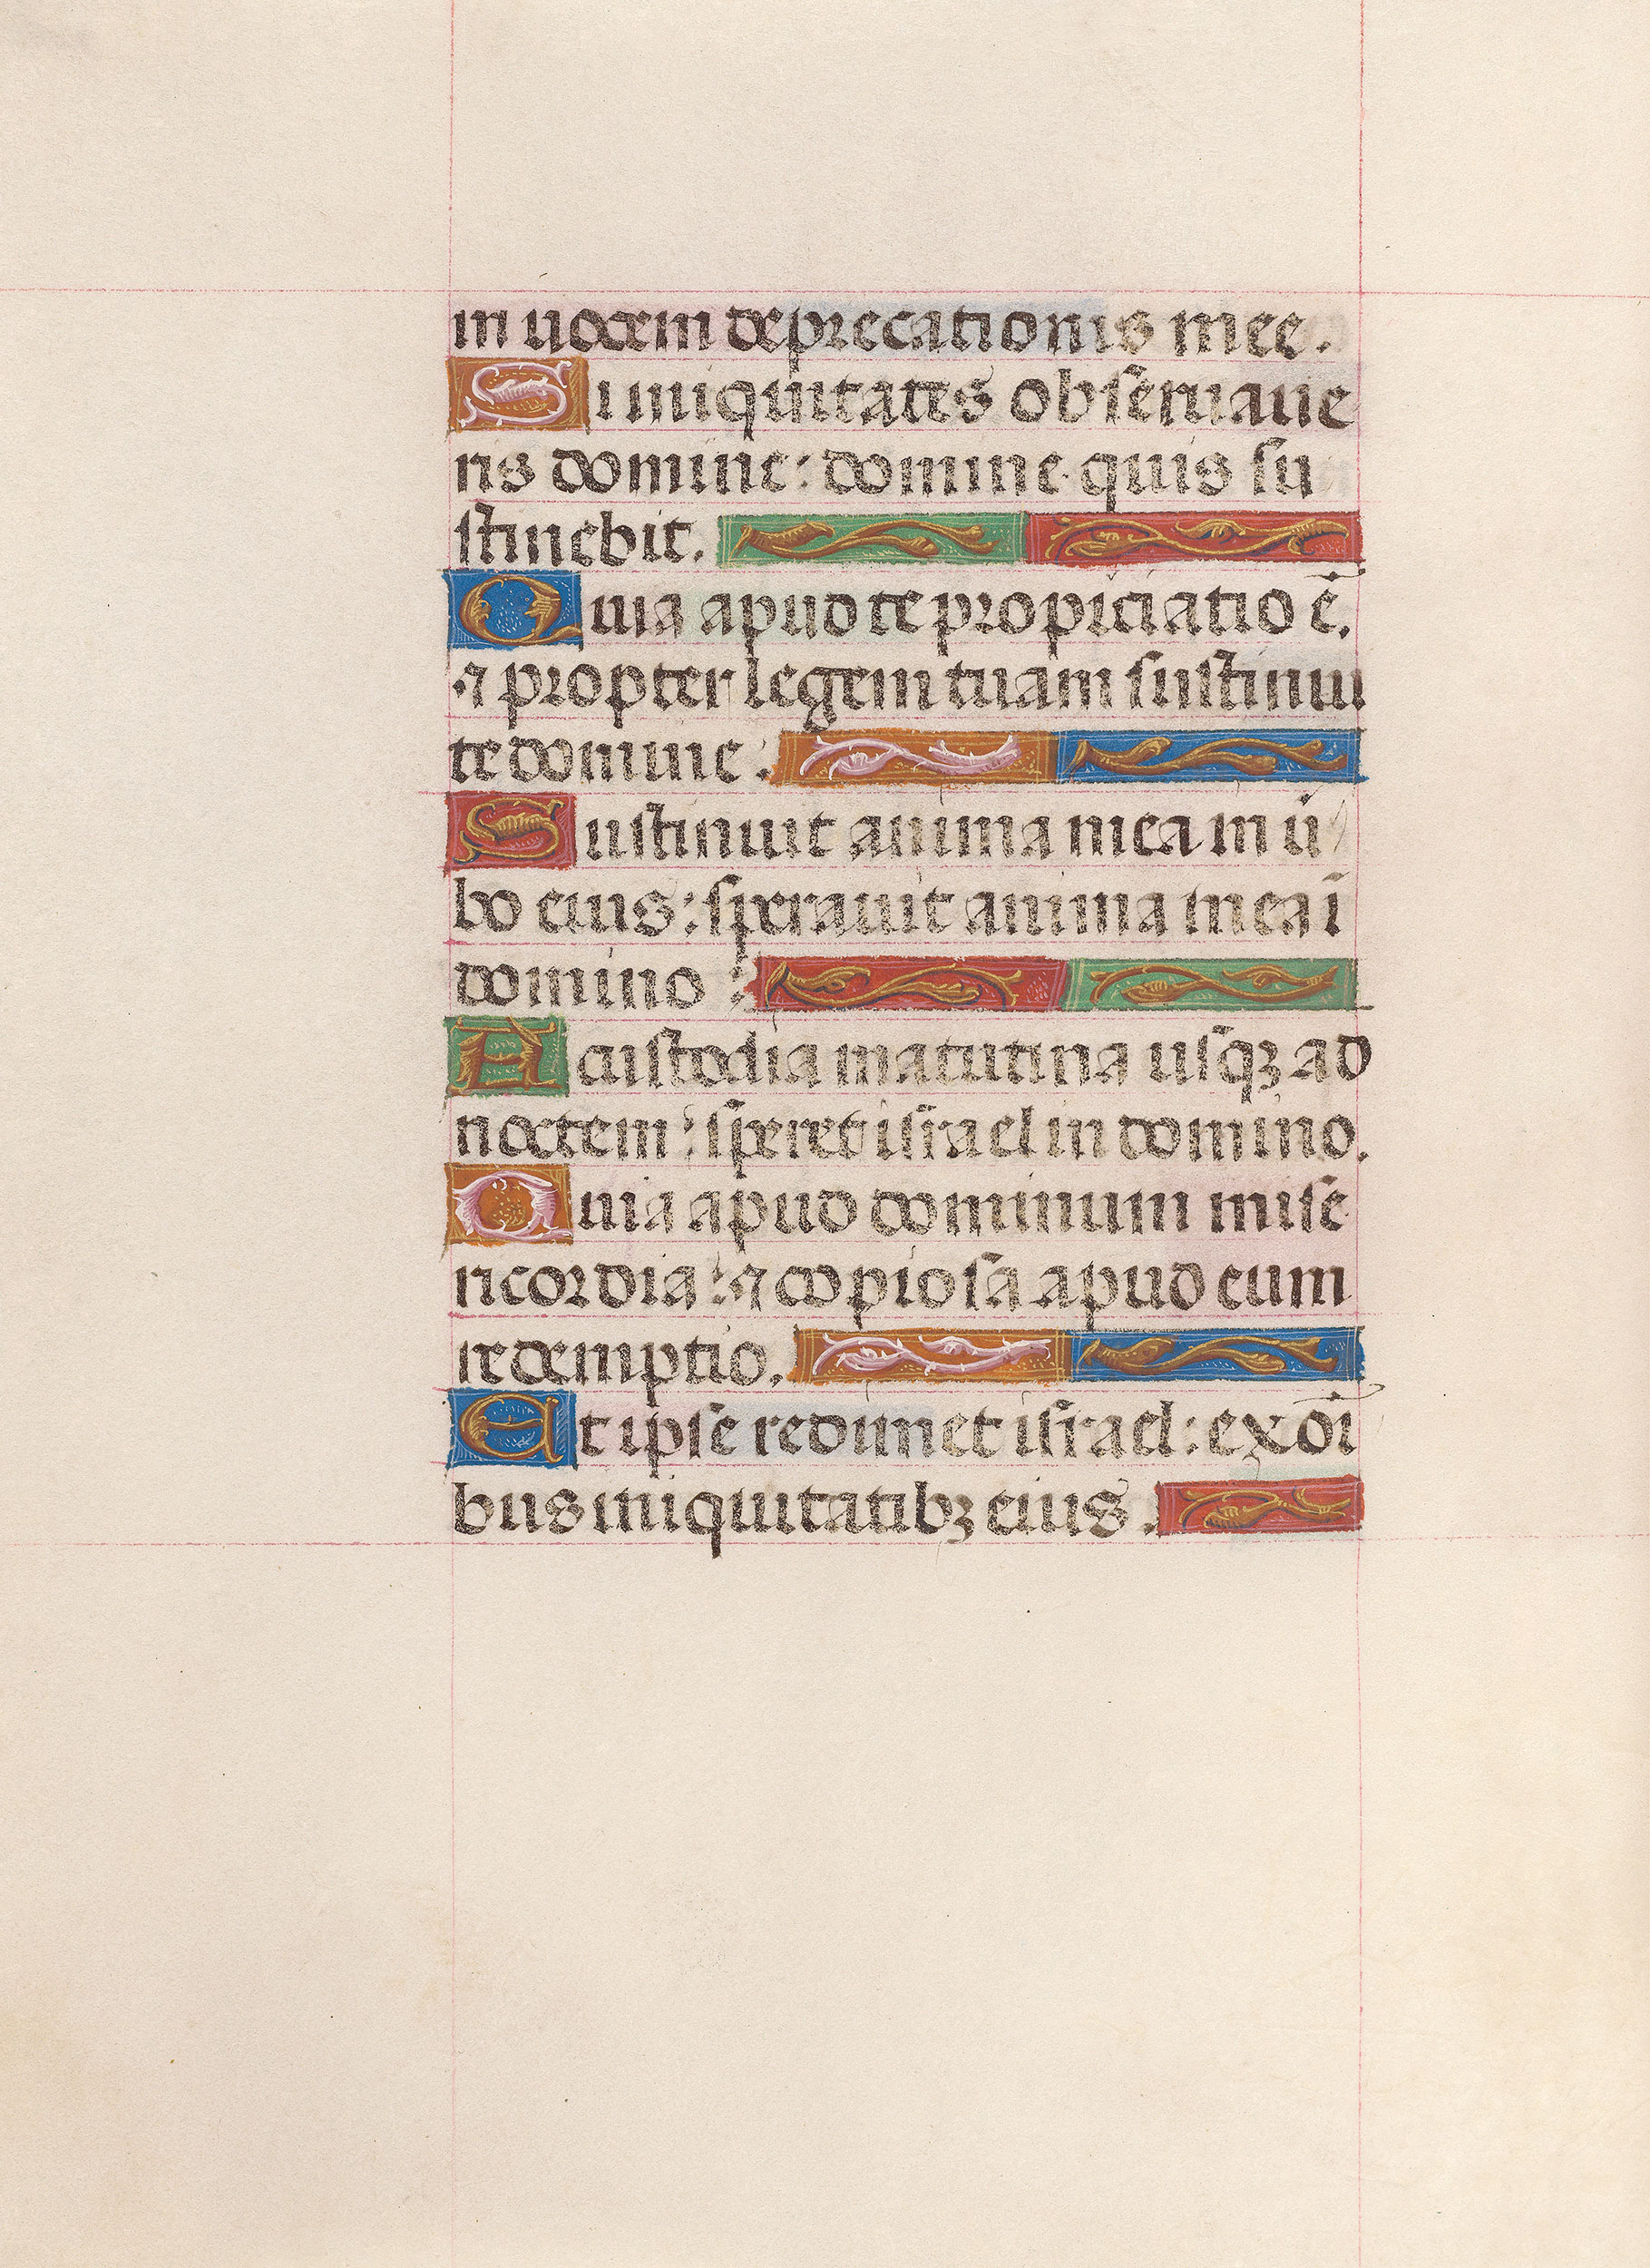 in uocem deprecationis mee.
Si iniquitates obseruaue
ris domine: domine quis su
stinebit.
Quia apud te propiciatio ē.
⁊ propter legem tuam sustinui
te domine:
Sustinuit anima mea in ū
bo eius: sperauit anima mea ī
domino:
A custodia matutina usqꝫ ad
noctem: speret israel in domino.
Quia apud dominum mise
ricordia: ⁊ copiosa apud eum
redemptio.
Et ipse redimet israel: ex oī
bus iniquitatibꝫ eius.